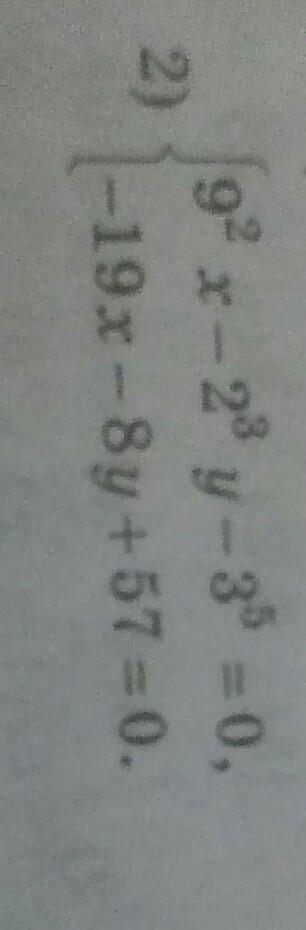 2) { 9² x − 2³ y − 3⁵ = 0,
−19x − 8y + 57 = 0.